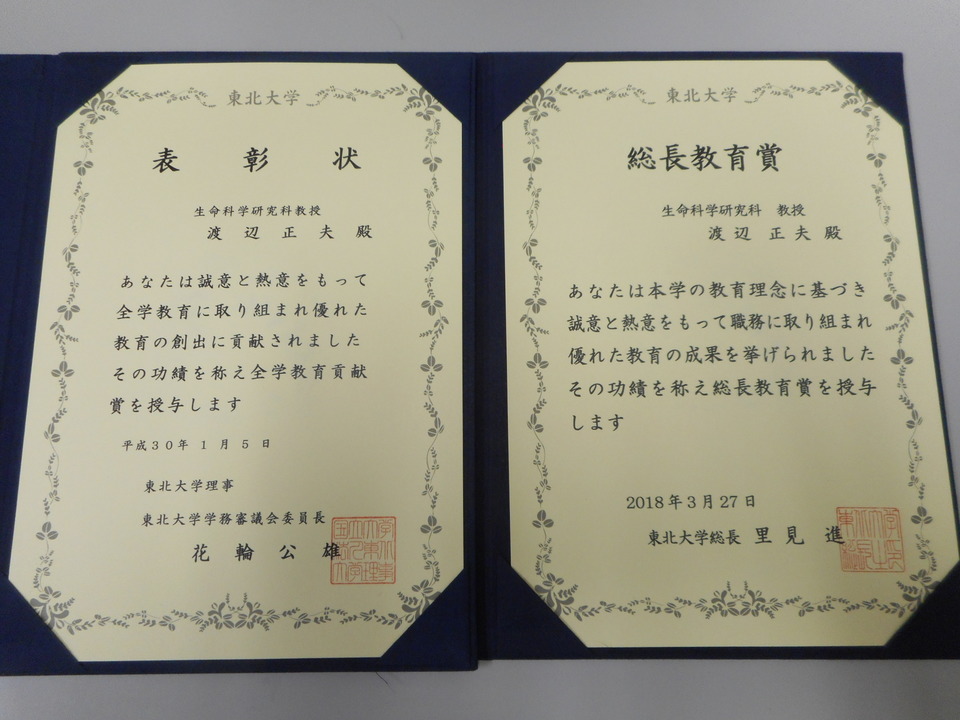 東北大学
表彰状
生命科学研究科教授
渡辺正夫殿
あなたは誠意と熱意をもって
全学教育に取り組まれ優れた
教育の創出に貢献されました
その功績を称え全学教育貢献
賞を授与します
平成30年1月5日
東北大学理事
東北大学学務審議会委員長
花輪公雄
東北大学
総長教育賞
生命科学研究科 教授
渡辺正夫殿
あなたは本学の教育理念に基づき
誠意と熱意をもって職務に取り組まれ
優れた教育の成果を挙げられました
その功績を称え総長教育賞を授与
します
2018年3月27日
東北大学総長 里見進